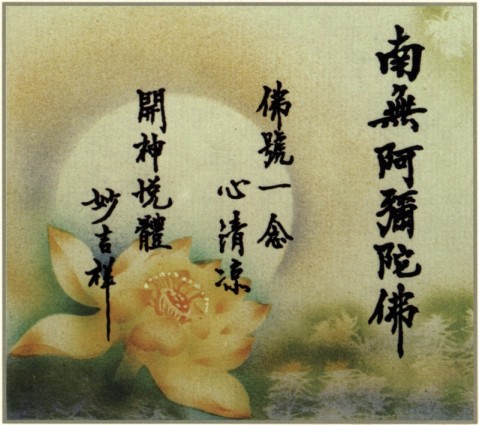 南無阿彌陀佛
佛號一念
心清涼
開神悅體
妙吉祥